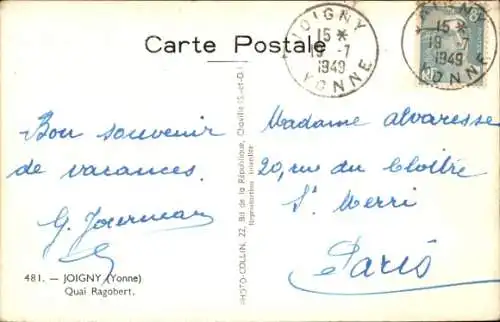 Carte Postale
JOIGNY
15 *
19 -7
1949
YONNE
JOIGNY
15 *
19 -7
1949
YONNE
Bon souvenir
de vacances.
G.
481. — JOIGNY (Yonne)
Quai Ragobert.
PHOTO-COLLIN, 22, Bd de la République, Chaville (S.-et-O.)
Reproduction interdite
Madame Alvaresse
20, rue du Cloître
St Merri
Paris